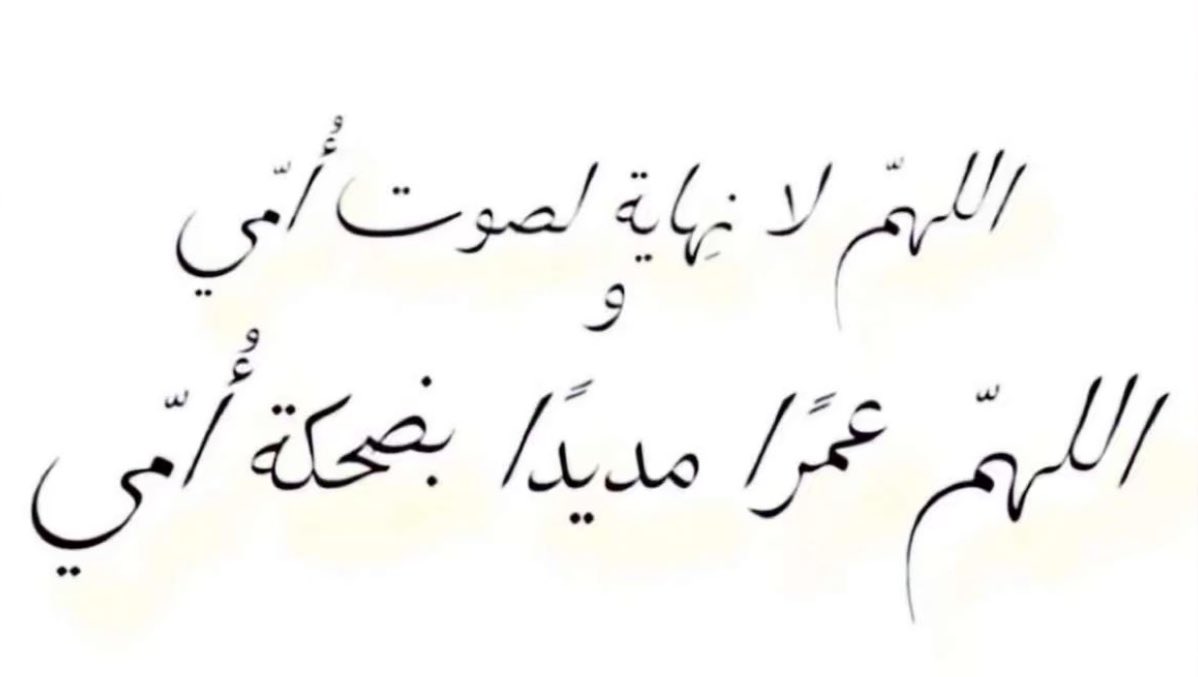 اللهمّ لا نِهاية لصوت أُمّي
و
اللهمّ عمرًا مديدًا بضحكة أُمّي